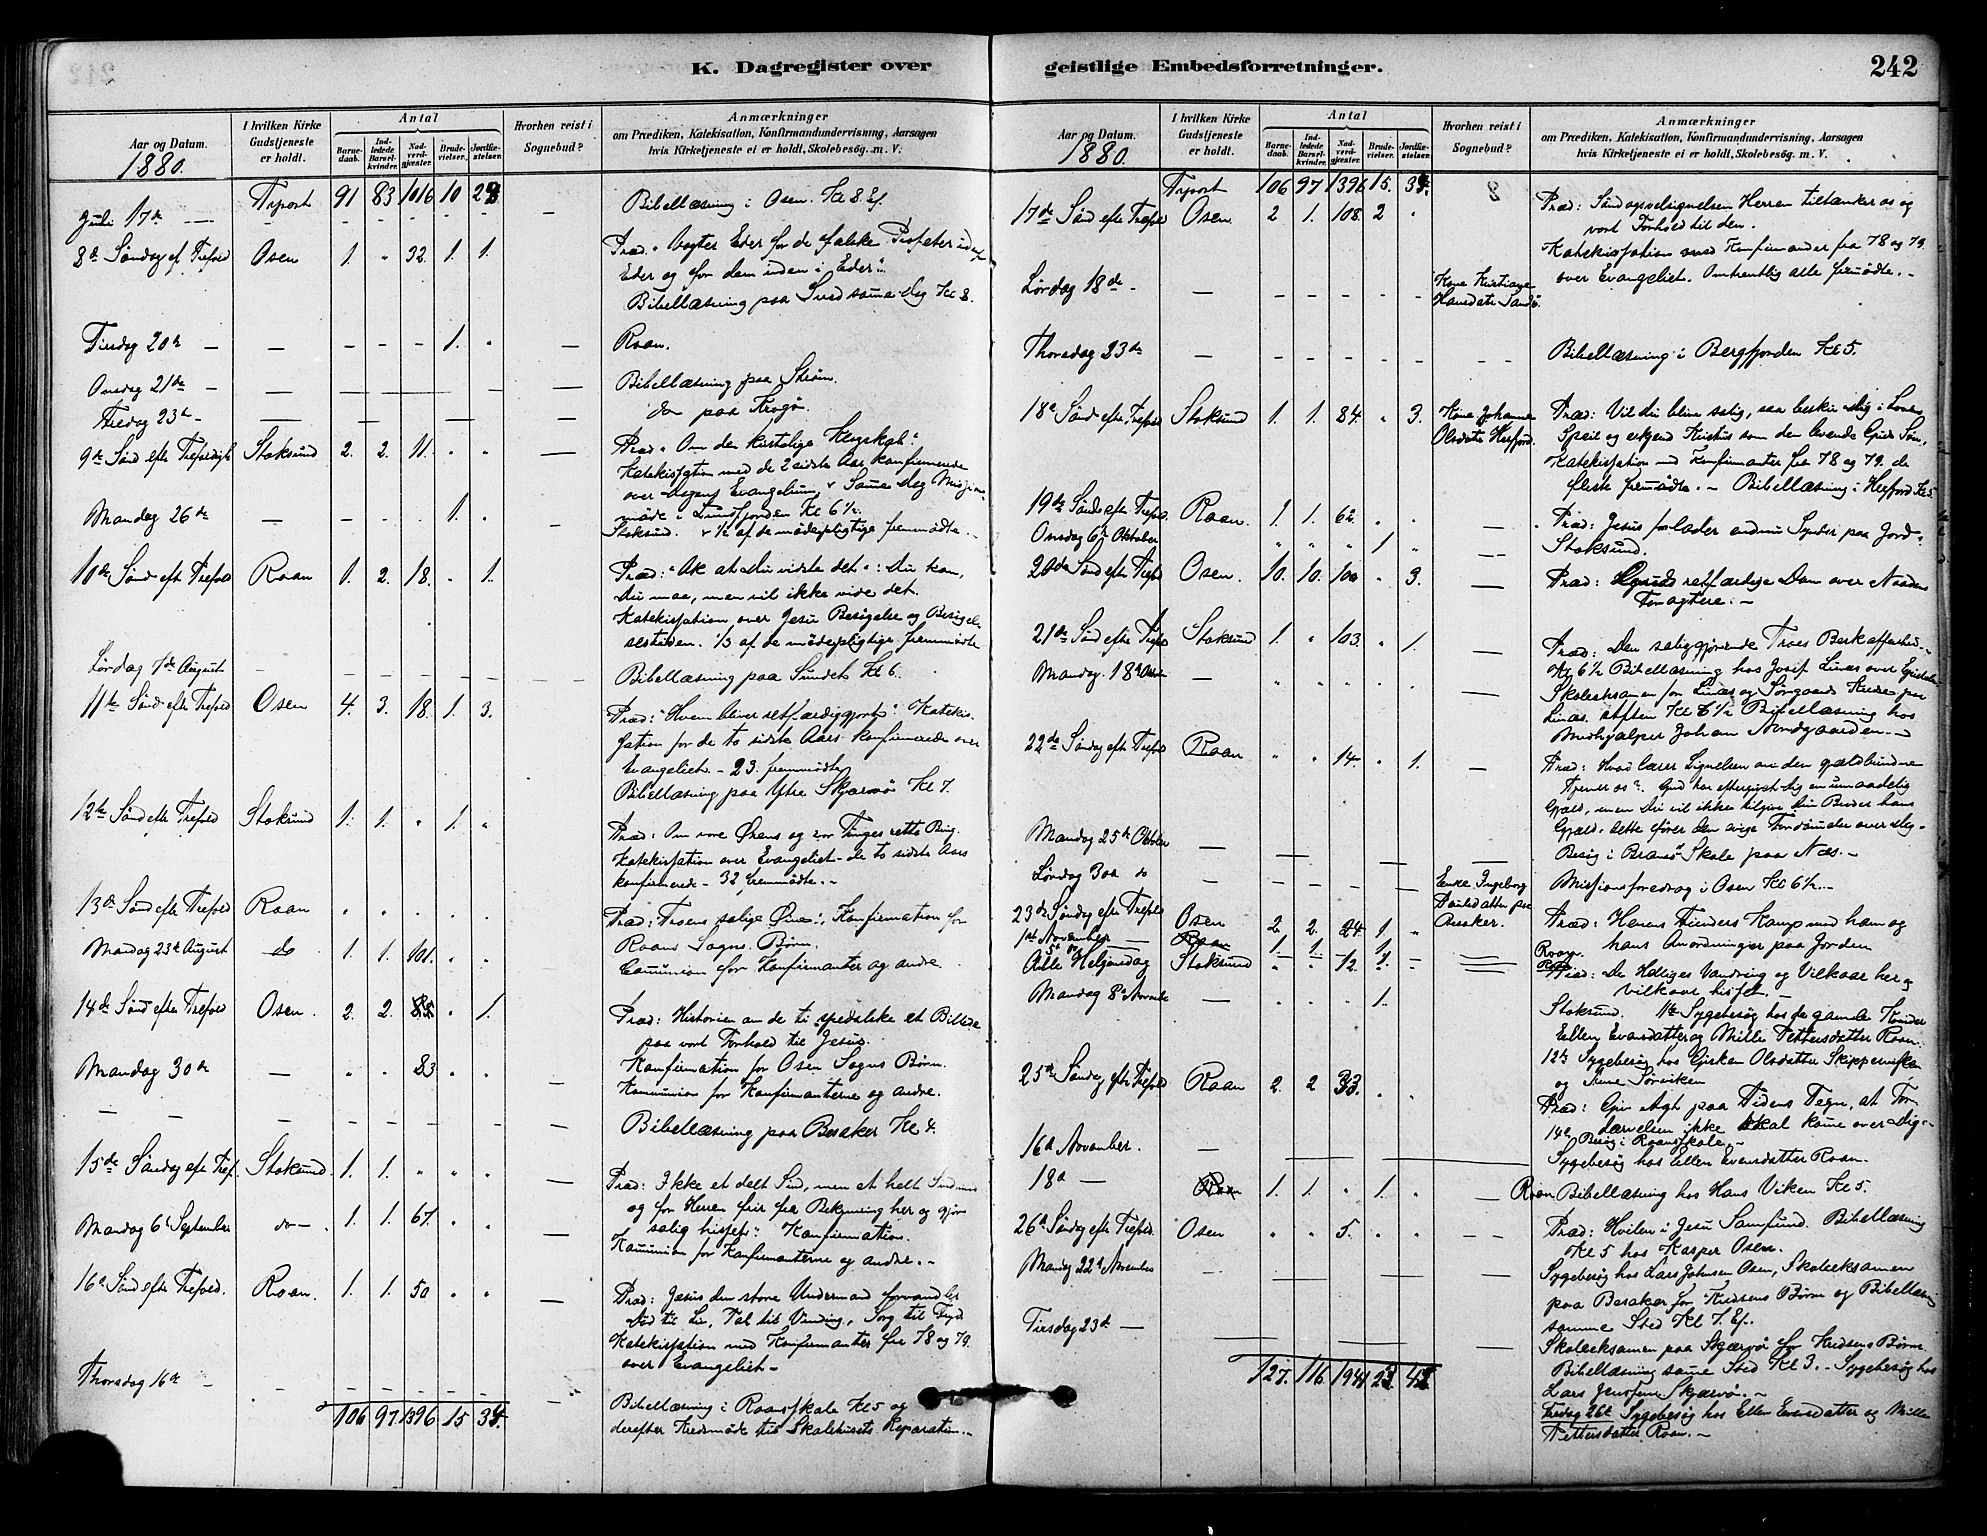 K. Dagregister over
Aar og Datum.
1880.
I hvilken Kirke Gudstjeneste er holdt.
Antal
Barnedaab.
Indledede Barselkvinder.
Nadverdgjester.
Brudevielser.
Jordfæstelser.
Hvorhen reist i Sognebud?
Anmærkninger
om Prædiken, Katekisation, Konfirmandundervisning, Aarsagen
hvis Kirketjeneste ei er holdt, Skolebesøg. m. V.
Trport 91 83 1016 10
Juli 17de — Bibellæsning i Osen. Kl 8 Ef.
8de Søndag ef Trefold Osen 1. " 32. 1. 1. Præd. "Vogter Eder for de falske Profeter uden
Eder og for dem inden i Eder".
Bibellæsning paa Sund samme Dag Kl 8.
Tirsdag 20de — 1. " Roan.
Onsdag 21de — Bibellæsning paa Strøm.
Fredag 23de — do paa Krogø.
9de Sønd efter Trefoldigh Stoksund 2. 2. 11. " " Præd. "Om de kristelige Klogskab".
Katekisation med de 2 sidste Aars konfirmerede
over Dagens Evangelium. Samme Dag Missions-
møde i Lundfjorden Kl 6½.
Mandag 26de — 1. " Stoksund. ½ af de mødepligtige fremmødte.
10de Sønd eft Trefold Roan 1. 2. 18. " 1. Præd: "Ak at Du vidste det": Du kan,
Du maa, men vil ikke vide det.
Katekisation over Jesu Besøgelse og Besøgel-
sestiden. 1/3 af de mødepligtige fremmødte
Lørdag 7de August — Bibellæsning paa Sundet Kl 6.
11te Sønd efter Trefold Osen 4. 3. 18. 1. 3. Præd: "Hvem bliver retfærdiggjort" Katekis-
sation for de to sidste Aars konfirmerede over
Evangeliet. — 23 fremmødte
Bibellæsning paa Yttre Skjærvø Kl 7.
12te Sønd efter Trefold Stoksund 1. 1. " 1. " Præd: Om vore Ørens og vor Tunges rette Brug.
Katekisation over Evangeliet — de to sidste Aars
konfirmerede — 32 fremmødte. —
13de Sønd efter Trefold Roan " " " " " Præd: Troens salige Øine: Konfirmation for
Roans Sogns Børn.
Mandag 23de August do 1. 1. 101. " " Communion for Konfirmanter og andre.
14de Sønd efter Trefold Osen. 2. 2. " 1. Præd: Historien om de ti spedalske et Billede
paa vort Forhold til Jesus.
Konfirmation for Osen Sogns Børn.
Mandag 30de — " " 83 " " Kommunion for Konfirmanterne og andre.
— — Bibellæsning paa Besaker Kl 4.
15de Søndag eft Tref. Stoksund 1. 1. " " " Præd: Ikke et delt Sind, men et helt Sind
og for Herren frir fra Bekymring her og gjør
salig hisset". Konfirmation.
Mandag 6te Septembr do — 1. 1. 67. " " Kommunion for Konfirmanterne og andre. —
16de Sønd efter Trefold. Roan. 1. 1. 50 " " Præd: Jesus den store Undermand forvandler
Død til Liv, Tab til Vinding, Sorg til Fryd
Katekisation med Konfirmanter fra 78 og 79.
over Evangeliet —
Thorsdag 16de — Bibellæsning i Roansskole Kl 5 og
derefter Kredsmøde til Skolehusets Reparation. —
106 97 1396 15
geistlige Embedsforretninger.
242
Aar og Datum.
1880.
I hvilken Kirke Gudstjeneste er holdt.
Antal
Barnedaab.
Indledede Barselkvinder.
Nadverdgjester.
Brudevielser.
Jordfæstelser.
Hvorhen reist i Sognebud?
Anmærkninger
om Prædiken, Katekisation, Konfirmandundervisning, Aarsagen
hvis Kirketjeneste ei er holdt, Skolebesøg. m. V.
Trport 106 97 1396 15.
17de Sønd efter Trefold Osen 2 1. 108. 2 " Præd: Søndagsvelsignelsen Herren tiltænker os og
vort Forhold til den.
Katekisation med Konfirmander fra 78 og 79.
over Evangeliet. Omtrentlig alle fremødte. —
Lørdag 18de — Kone Kristiane
Hansdatr Sandø
Thorsdag 23de — Bibellæsning i Bergfjorden Kl 5.
18de Sønd efter Trefold Stoksund 1. 1. 84. " 3. Kone Johanne
Olsdatr Herfjord. Præd: Vil du blive salig, saa beskue dig i Lovens
Speil og erkjend Kristus som den levende Guds Søn.
Katekisation med Konfirmanter fra 78 og 79. de
fleste fremødte. — Bibellæsning i Herfjord Kl 5
19de Sønd efter Trefol. Roan. 1. 1. 62. " " — Præd: Jesus forlader endnu Synder paa Jord.
Onsdag 6te Oktober " " " 1 " — Stoksund.
20de Sønd eft Trefold Osen. 10. 10. 100 " 3. — Præd: Guds retfærdige Dom over Naadens
Foragtere. —
21de Sønd efter Trefold Stoksund 1. " 103. " 1. — Præd: Den saliggjørende Troes
Kl 6½ Bibellæsning hos Josef Linæs over Epistelen
Mandag 18de Oktbr — " " " " " — Skoleeksamen for Linæs og Sørgaards Kreds paa
Linæs. Aften Kl 6½ Bibellæsning hos
Medhjælper Johan Nordgaarden. —
22de Søndag efter Trefold Roan " " 14. " 1. — Præd: Hvad lærer Lignelsen om den gjældbundne
Tjener os". Gud har eftergivet dig en umaadelig
Gjæld, men Du vil ikke tilgive din Broder hans
Gjæld, dette fører den evige Fordømmelse over dig.
Mandag 25de Oktober — Besøg i Skole paa Næs. —
Lørdag 30de do — Enke Ingeborg
Paulsdatter paa
Besaker. Missionsforedrag i Osen Kl 6½. —
23de Søndag efter Trefold Osen 2. 2. 24. 1. " Præd: Herrens Fienders Kamp mod ham og
hans Anordninger paa Jorden
1ste November — Roan 1. 1. " 1. — Roan.
Alle Helgensdag Stoksund " " 12. 1. — Præd: De Helliges Vandring og Vilkaar her og
vilkaar hisset. —
Mandag 8de Novembr — " " " 1. Stoksund. 11te Sygebesøg hos de gamle Kvinder
Ellen Evensdatter og Mille Pettersdatter Roan.
12te Sygebesøg hos Gjertru Olsdatter Skippervigen
og Sørviken
25de Søndag efter Trefold Roan 2. 2 33. " " Præd: Giv Agt paa Tidens Tegn, at For-
dærvelsen ikke skal komme over Dig. —
14de Besøg i Roansskole. —
16de November. — Sygebesøg hos Ellen Evensdatter Roan.
18de — Roan 1. 1. " 1. " — Roan Bibellæsning hos Hans Viken Kl 5.
26de Søndag efter Trefold. Osen " " 5. " " — Præd: Hvilen i Jesu Samfund. Bibellæsning
Kl 5 hos Kasper Osen.
Mandag 22de November — Sygebesøg hos Lars Johnsen Osen, Skoleeksamen
paa Besaker for Kredsens Børn og Bibellæsning
samme Sted Kl 7 Ef.
Tirsdag 23de — Skoleeksamen paa Skjærvø for Kredsens Børn
Bibellæsning samme Sted Kl 3. — Sygebesøg hos
Lars Jenssen Skjærvø. —
Fredag 26de Sygebesøg hos Ellen Evensdatter og Mille
Pettersdatter Roan. —
127. 116. 1941